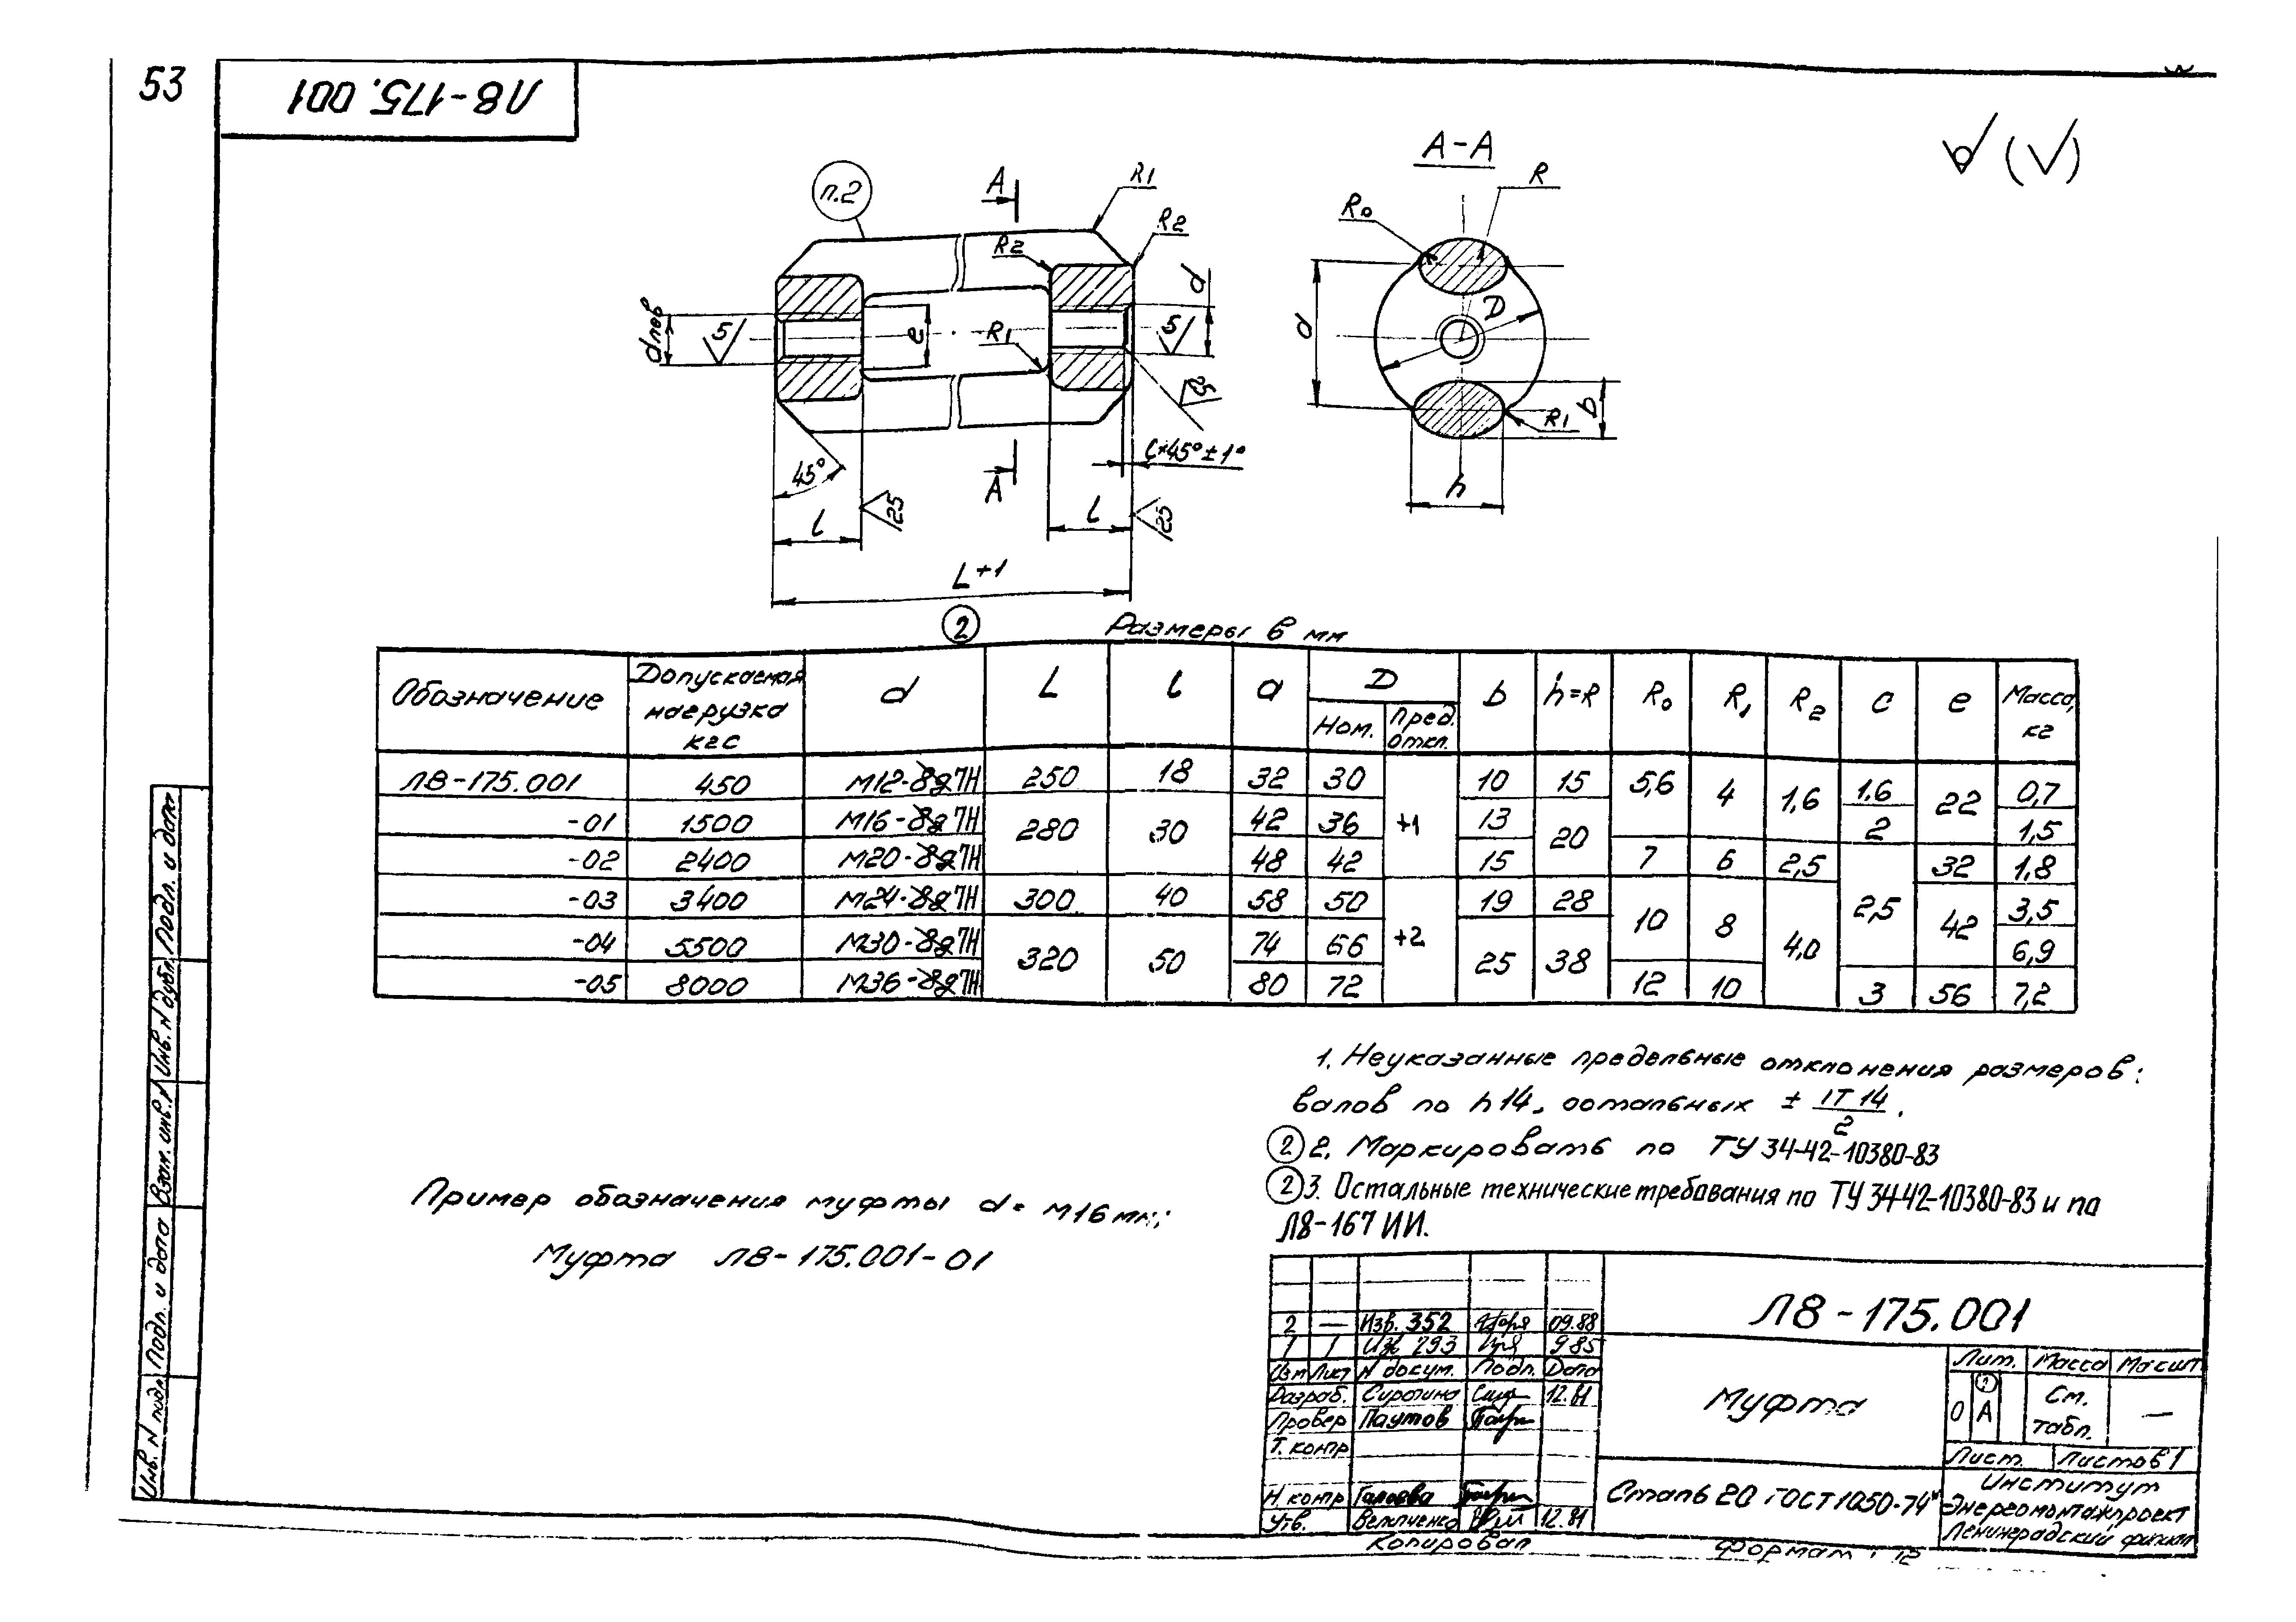 53
Л8-175.001
п.2
A
R1
R2
R2
d
dлев
5
e
R1
5
25
c×45°±1°
45°
A
l
25
l
25
L+1
A-A
R
R₀
d
D
b
R1
h
(√)
2
Размеры в мм
Обозначение | Допускаемая нагрузка кгс | d | L | l | a | D Ном. | D Пред. откл. | b | h=R | R₀ | R₁ | R₂ | c | e | Масса, кг
Л8-175.001 | 450 | М12-8g 7H | 250 | 18 | 32 | 30 | +1 | 10 | 15 | 5,6 | 4 | 1,6 | 1,6 | 22 | 0,7
-01 | 1500 | М16-8g 7H | 280 | 30 | 42 | 36 | 13 | 20 | 2 | 1,5
-02 | 2400 | М20-8g 7H | 48 | 42 | 15 | 7 | 6 | 2,5 | 2,5 | 32 | 1,8
-03 | 3400 | М24-8g 7H | 300 | 40 | 58 | 50 | +2 | 19 | 28 | 10 | 8 | 4,0 | 42 | 3,5
-04 | 5500 | М30-8g 7H | 320 | 50 | 74 | 66 | 25 | 38 | 6,9
-05 | 8000 | М36-8g 7H | 80 | 72 | 12 | 10 | 3 | 56 | 7,2
1. Неуказанные предельные отклонения размеров:
валов по h14, остальных ± IT 14/2.
2 2. Маркировать по ТУ 34-42-10380-83
2 3. Остальные технические требования по ТУ 34-42-10380-83 и по
Л8-167 ИИ.
Пример обозначения муфты d = М16 мм:
Муфта Л8-175.001-01
Подп. и дата
Инв. N дубл.
Взам. инв. N
Подп. и дата
Инв. N подл.
2 — Изв. 352 09.88
1 1 293 9.85
Изм Лист N докум. Подп. Дата
Разраб. Сиротина 12.81
Провер Паутов
Т. контр
Н. контр
Утв. Величенко 12.81
Л8-175.001
Муфта
Лит. Масса Масшт
О 2 А См. табл. —
Лист. Листов 1
Сталь 20 ГОСТ 1050-74*
Институт
Энергомонтажпроект
Ленинградский филиал
Копировал
Формат 12